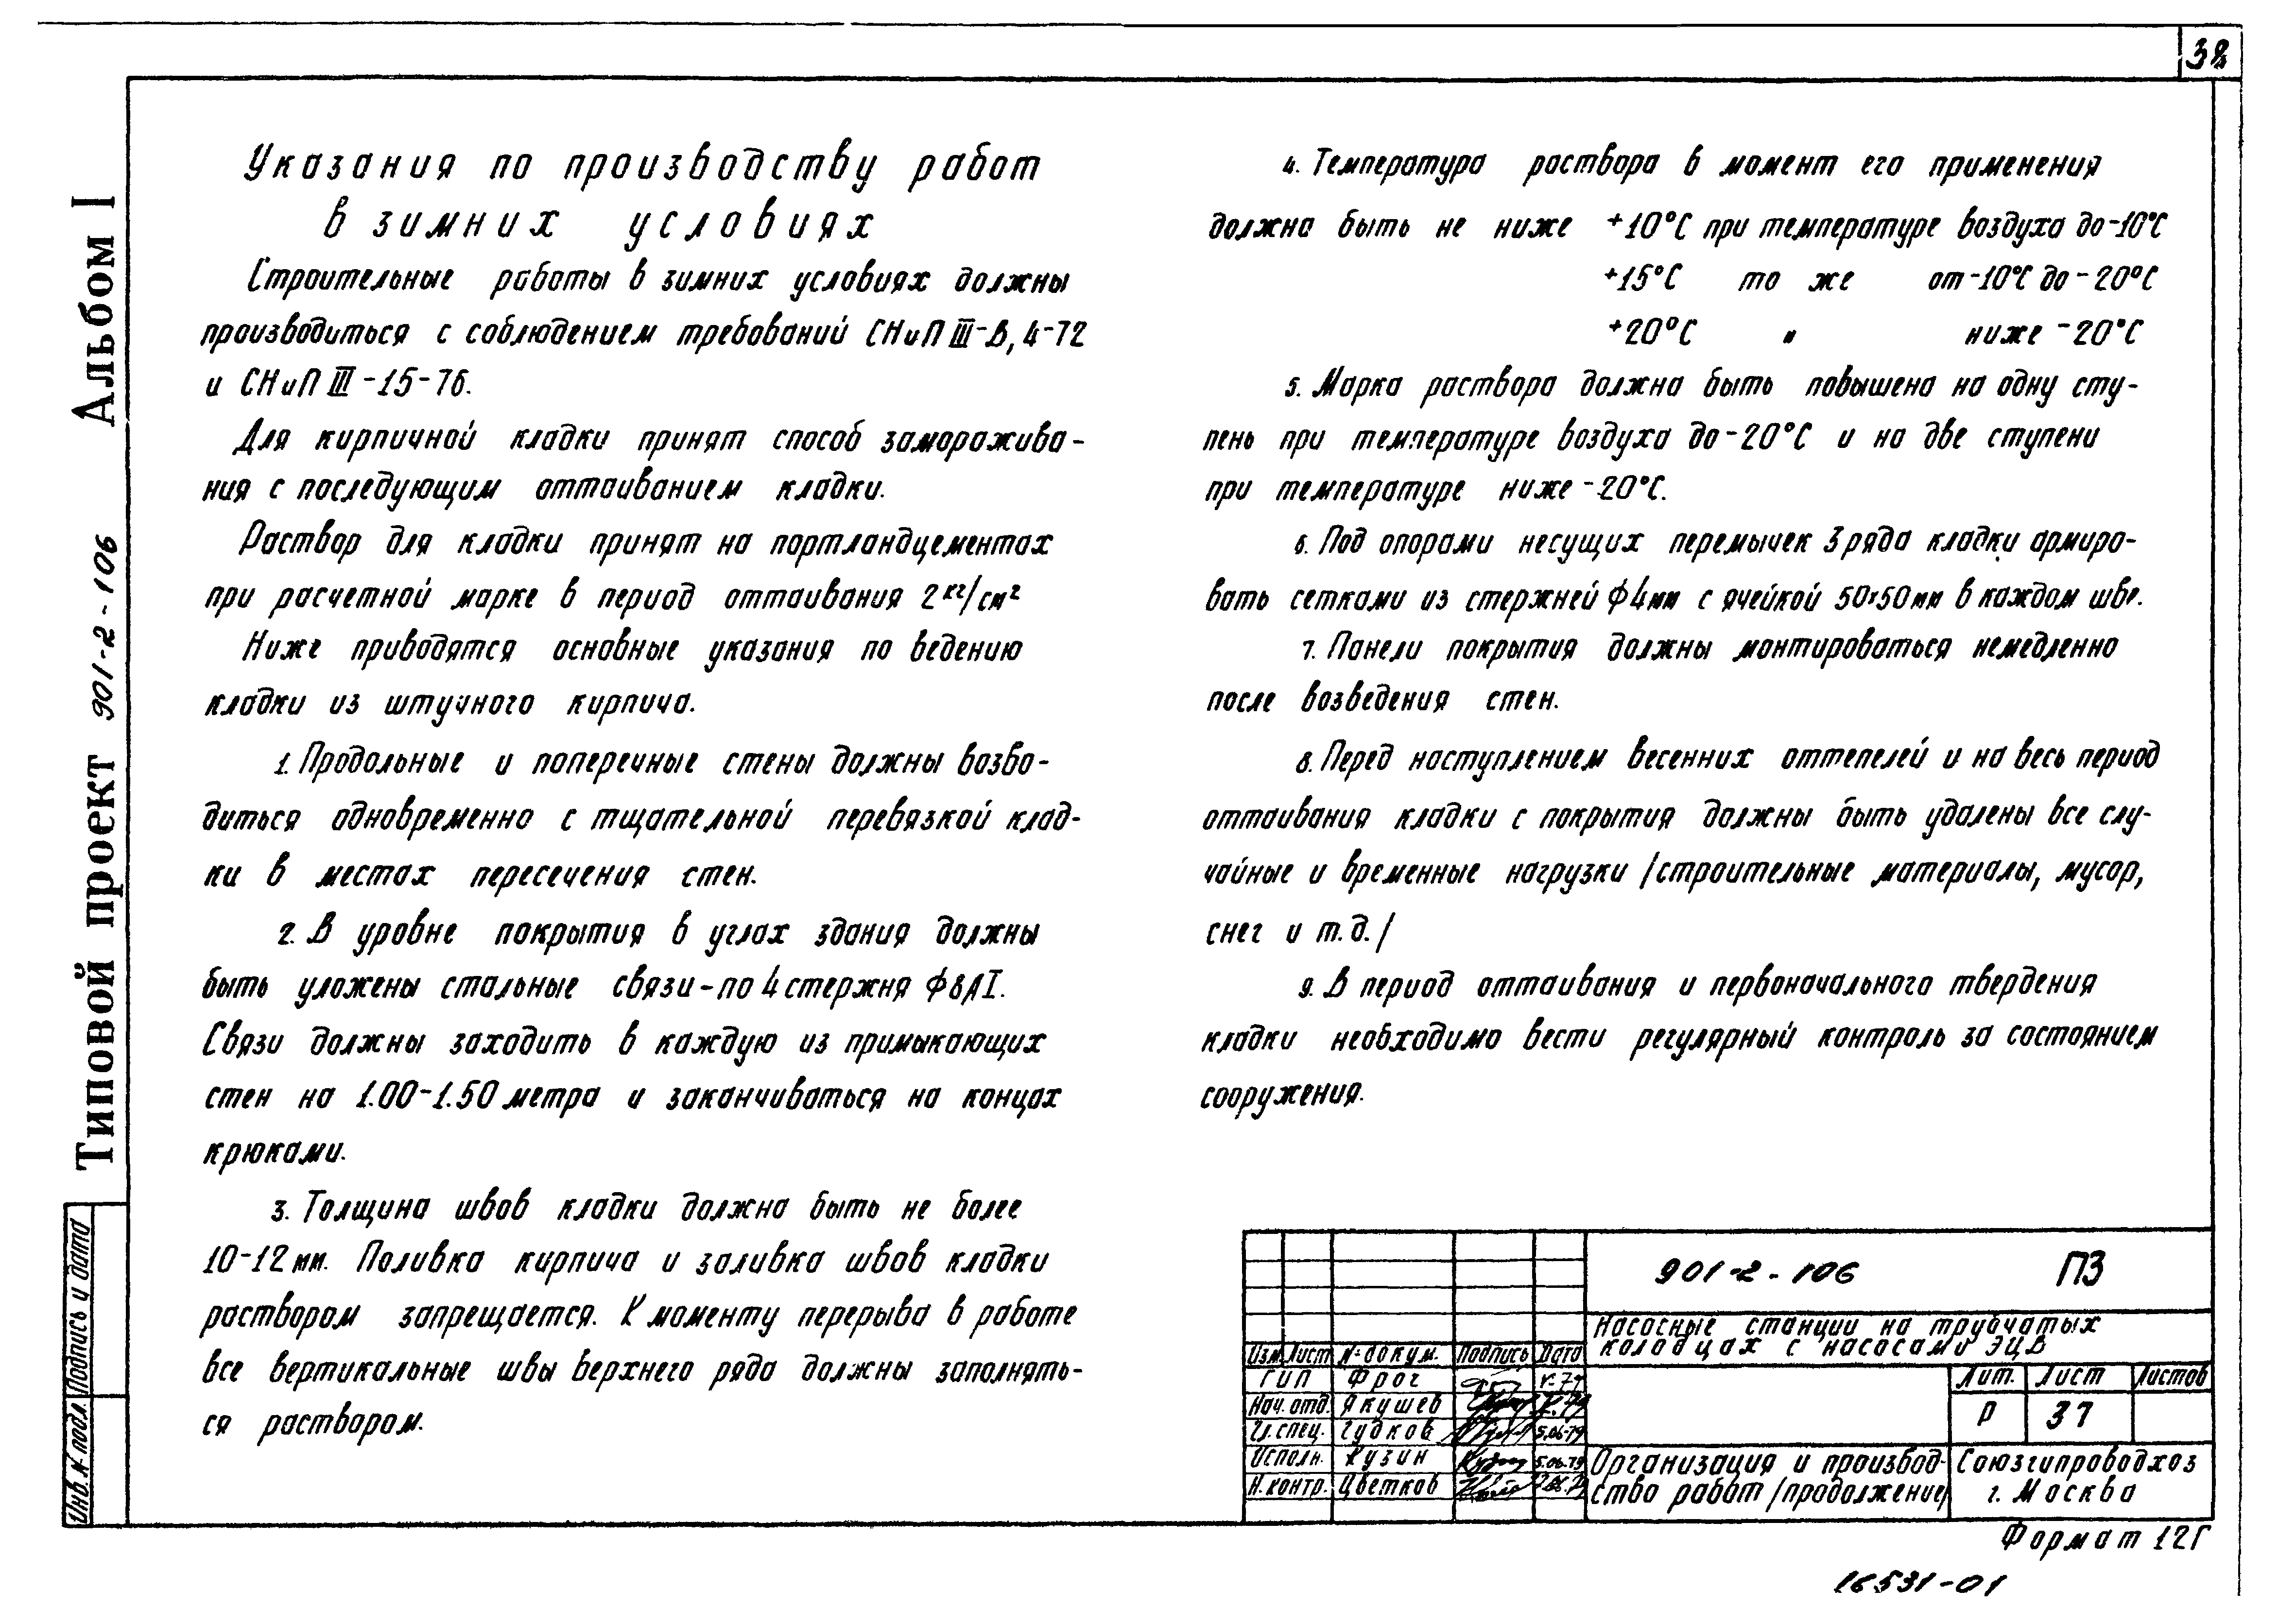 38
Типовой проект 901-2-106 Альбом I
Указания по производству работ
в зимних условиях
Строительные работы в зимних условиях должны
производиться с соблюдением требований СНиП III-В,4-72
и СНиП III-15-76.
Для кирпичной кладки принят способ заморажива-
ния с последующим оттаиванием кладки.
Раствор для кладки принят на портландцементах
при расчетной марке в период оттаивания 2 кг/см²
Ниже приводятся основные указания по ведению
кладки из штучного кирпича.
1. Продольные и поперечные стены должны возво-
диться одновременно с тщательной перевязкой клад-
ки в местах пересечения стен.
2. В уровне покрытия в углах здания должны
быть уложены стальные связи-по 4 стержня ф8АI.
Связи должны заходить в каждую из примыкающих
стен на 1.00-1.50 метра и заканчиваться на концах
крюками.
3. Толщина швов кладки должна быть не более
10-12мм. Поливка кирпича и заливка швов кладки
раствором запрещается. К моменту перерыва в работе
все вертикальные швы верхнего ряда должны заполнять-
ся раствором.
4. Температура раствора в момент его применения
должна быть не ниже +10°С при температуре воздуха до-10°С
+15°С то же от-10°С до-20°С
+20°С " ниже -20°С
5. Марка раствора должна быть повышена на одну сту-
пень при температуре воздуха до-20°С и на две ступени
при температуре ниже-20°С.
6. Под опорами несущих перемычек 3 ряда кладки армиро-
вать сетками из стержней ф4мм с ячейкой 50х50мм в каждом шве.
7. Панели покрытия должны монтироваться немедленно
после возведения стен.
8. Перед наступлением весенних оттепелей и на весь период
оттаивания кладки с покрытия должны быть удалены все слу-
чайные и временные нагрузки /строительные материалы, мусор,
снег и т.д./
9. В период оттаивания и первоначального твердения
кладки необходимо вести регулярный контроль за состоянием
сооружения.
Инв.№ подл. Подпись и дата
901-2-106 ПЗ
Насосные станции на трубчатых
колодцах с насосами ЭЦВ
Изм. Лист № докум. Подпись Дата
ГИП Фрог
Нач. отд. Якушев
Гл. спец. Гудков 5.06-79
Исполн. Кузин 5.06.79
Н. контр. Цветков
Лит. Лист Листов
Р 37
Организация и производ-
ство работ /продолжение/
Союзгипроводхоз
г. Москва
Формат 12Г
16531-01